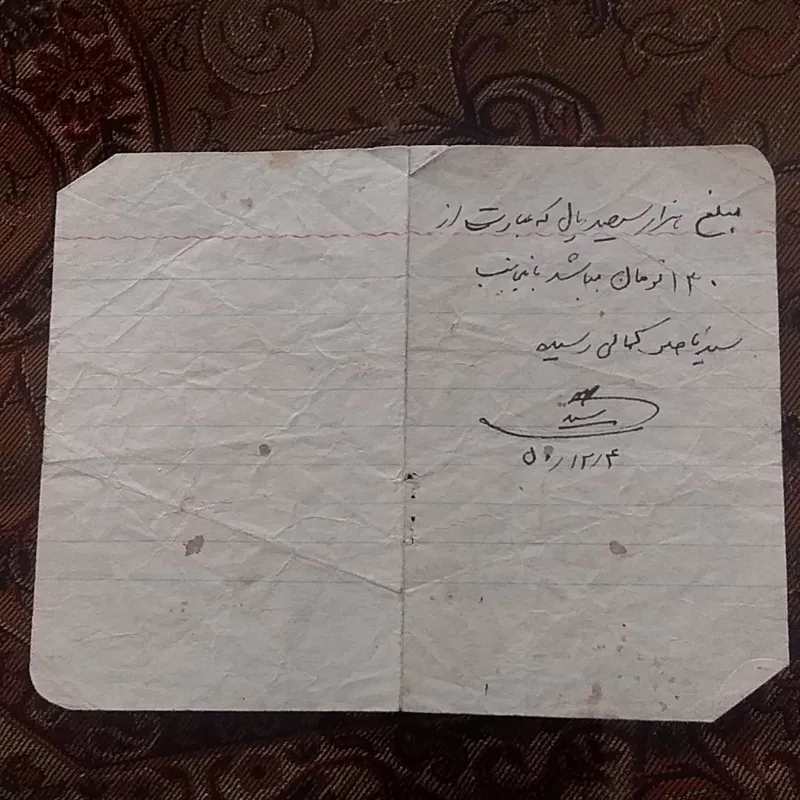 مبلغ هزار سیصد ریال که عبارت از
۱۳۰ تومان میباشد باینجانب
سید ناصر کمالی رسید
سید